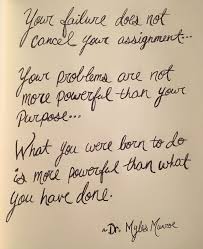 Your failure does not
cancel your assignment...
Your problems are not
more powerful than your
Purpose...
What you were born to do
is more powerful than what
you have done.
~Dr. Myles Munroe